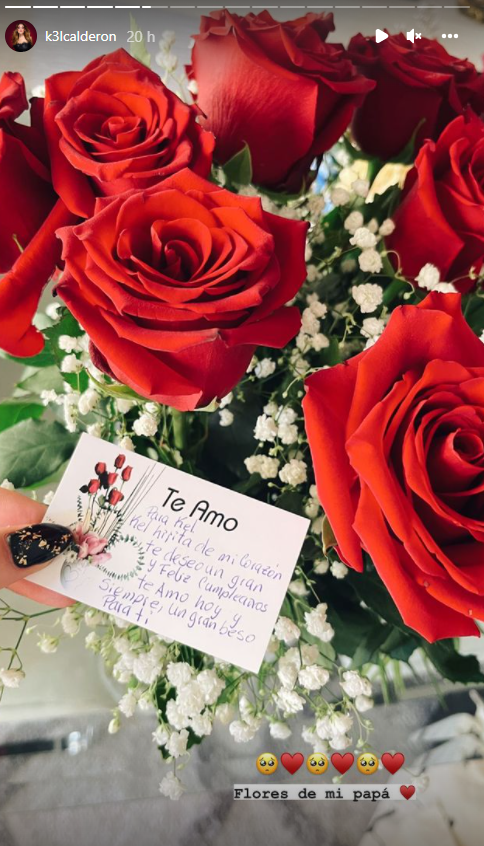 k3lcalderon 20 h
Te Amo
Para Kel
Kelhitita de mi Corazón
te deseo un gran
y Feliz Cumpleaños
te Amo hoy y
Siempre, un gran beso
Para ti
🥺♥️🥺♥️🥺♥️
Flores de mi papá ♥️